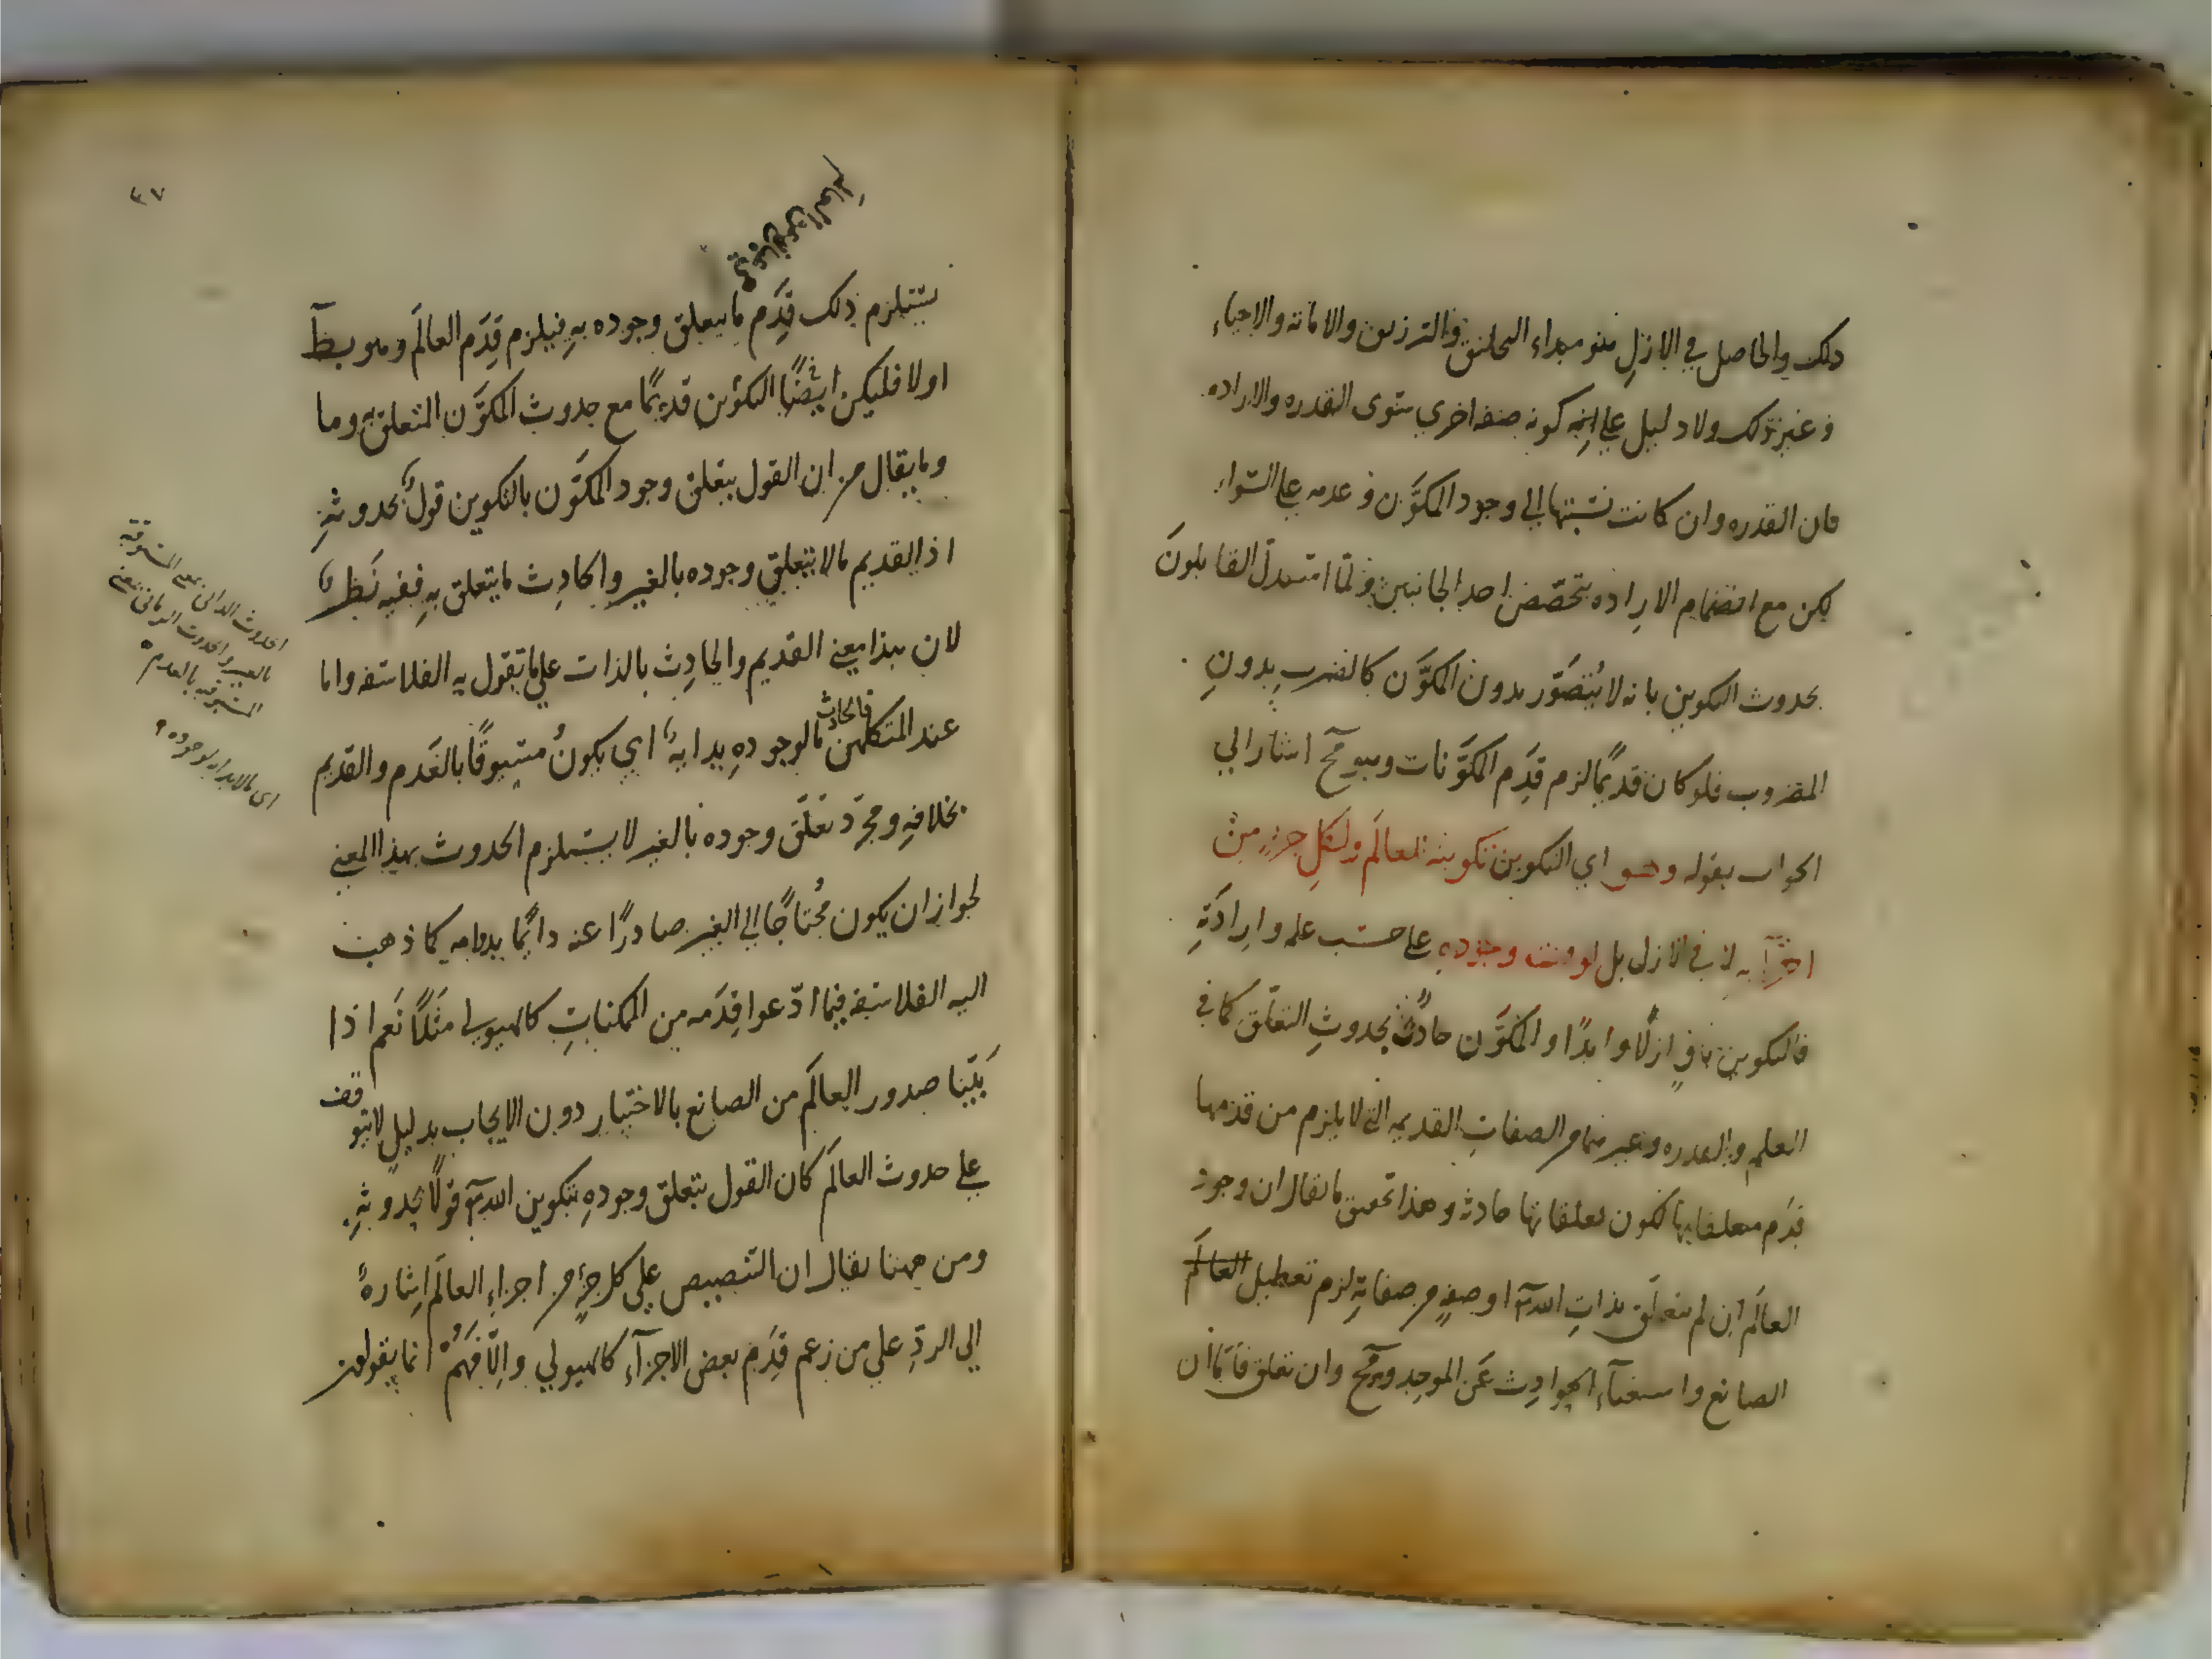 ذلك والحاصل في الازلِ هو مبداء التخليق والترزيق والاماتة والاحياء
وغير ذلك ولا دليل علي كونه صفة اخري سوى القدرة والارادة
فان القدرة وان كانت نسبتها الي وجود المكوَّن وعدمه علي السّواء
لكن مع انضمام الارادة يتخصّص احد الجانبين ولمّا استدلّ القايلونَ
بحدوث التكوين بانه لا يُتصَوّر بدون المكوَّن كالضرب بدونِ
المضروب فلو كان قديمًا لزم قِدَم المكوَّنات وهو مح اشار الي
الجواب بقوله وهو اي التكوين تكوينه للعالَم ولكلِ جزءٍ من
اجزآيه لا في الازل بل لوقت وجودِه علي حسَب علمه وارادَتِهِ
فالتكوين باقٍ ازلًا وابدًا والمكوَّن حادثٌ بحدوثِ التعلّق كما في
العلم والقدرة وغيرهما من الصفاتِ القديمه التي لا يلزم من قدمها
قِدَم متعلقاتها لكون تعلقاتها حادثه وهذا تحقيق ما يقال ان وجود
العالَم ان لم يتعلّق بذاتِ الله تع اوصفةٍ من صفاتِهِ لزم تعطيل العالَم
الصانع واستغنآء الحوادِث عَن الموجِد وهو مح وان تعلق فامّا ان
٣٧
يستلزم ذلك قِدَم ما يتعلق وجوده بهِ فيلزم قِدَم العالَم وهو بطّ
اولا فليكن ايضًا التكوين قديمًا مع حدوث المكوَّن المتعلق به وما
وما يقال من ان القول بتعلق وجود المكوَّن بالتكوين قولٌ بحدوثهِ
اذ القديم ما لا يتعلق وجوده بالغير والحادِث ما يتعلق بهِ ففيه نَظرٌ
لان هذا معني القديم والحادِث بالذات علي ما تقول به الفلاسفه واما
عند المتكلمين فالحادث ما لوجودهِ بدايةٌ اي يكونُ مسبوقًا بالعَدم والقديم
بخلافِهِ ومجرّد تعلّق وجوده بالغير لا يستلزم الحدوث بهذا المعني
لجواز ان يكون مُحتاجًا الي الغير صادرًا عنه دائمًا بدوامه كما ذهبت
اليه الفلاسفه فيما ادّعوا قِدَمه من الممكناتِ كالهيولي مثَلًا نَعم اذا
بَيّنا صدور العالَم من الصانع بالاختيار دون الايجاب بدليلٍ لا يتوقف
علي حدوث العالَم كان القول بتعلق وجودِهِ بتكوين الله تع قولًا بحدوثهِ
ومن ههنا يقال ان التنصيص علي كل جزءٍ من اجزاءِ العالَم اِشارةً
الي الردِّ علي من زعم قِدَم بعض الاجزآءِ كالهيولي والّا فهمْ انما يقولون
الحدوث الذاتي بمعنى المسبوقية
بالغير والحدوث الزماني بمعنى
المسبوقية بالعدم
اي ما لا بداية لوجوده